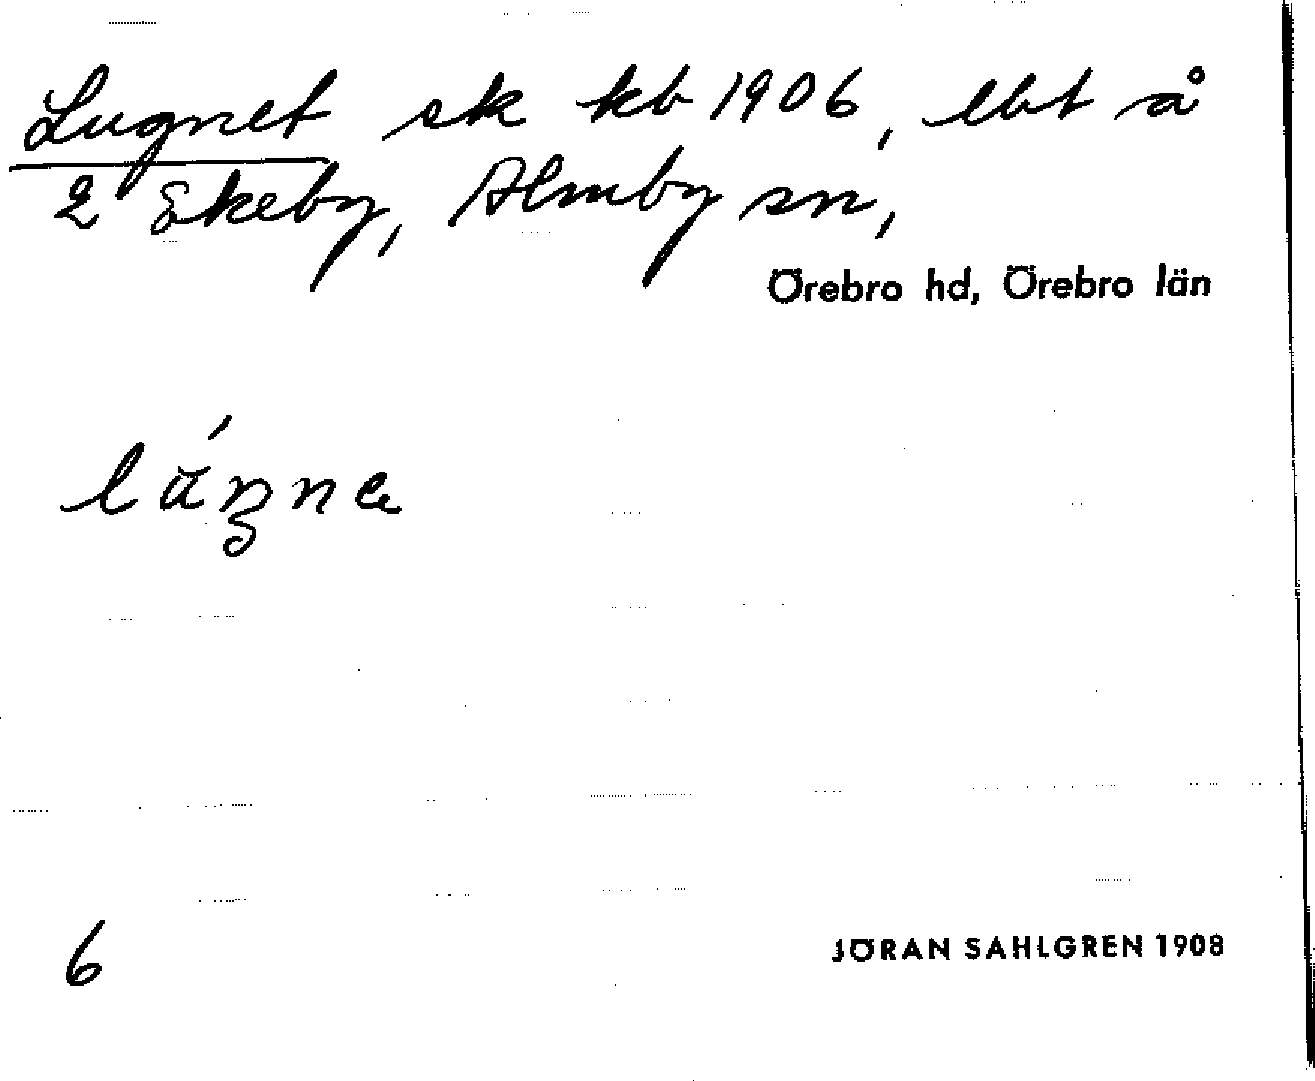 Lugnet sk kb 1906, lbt å
2 Ekeby, Almby sn,
Örebro hd, Örebro län
6
JÖRAN SAHLGREN 1908